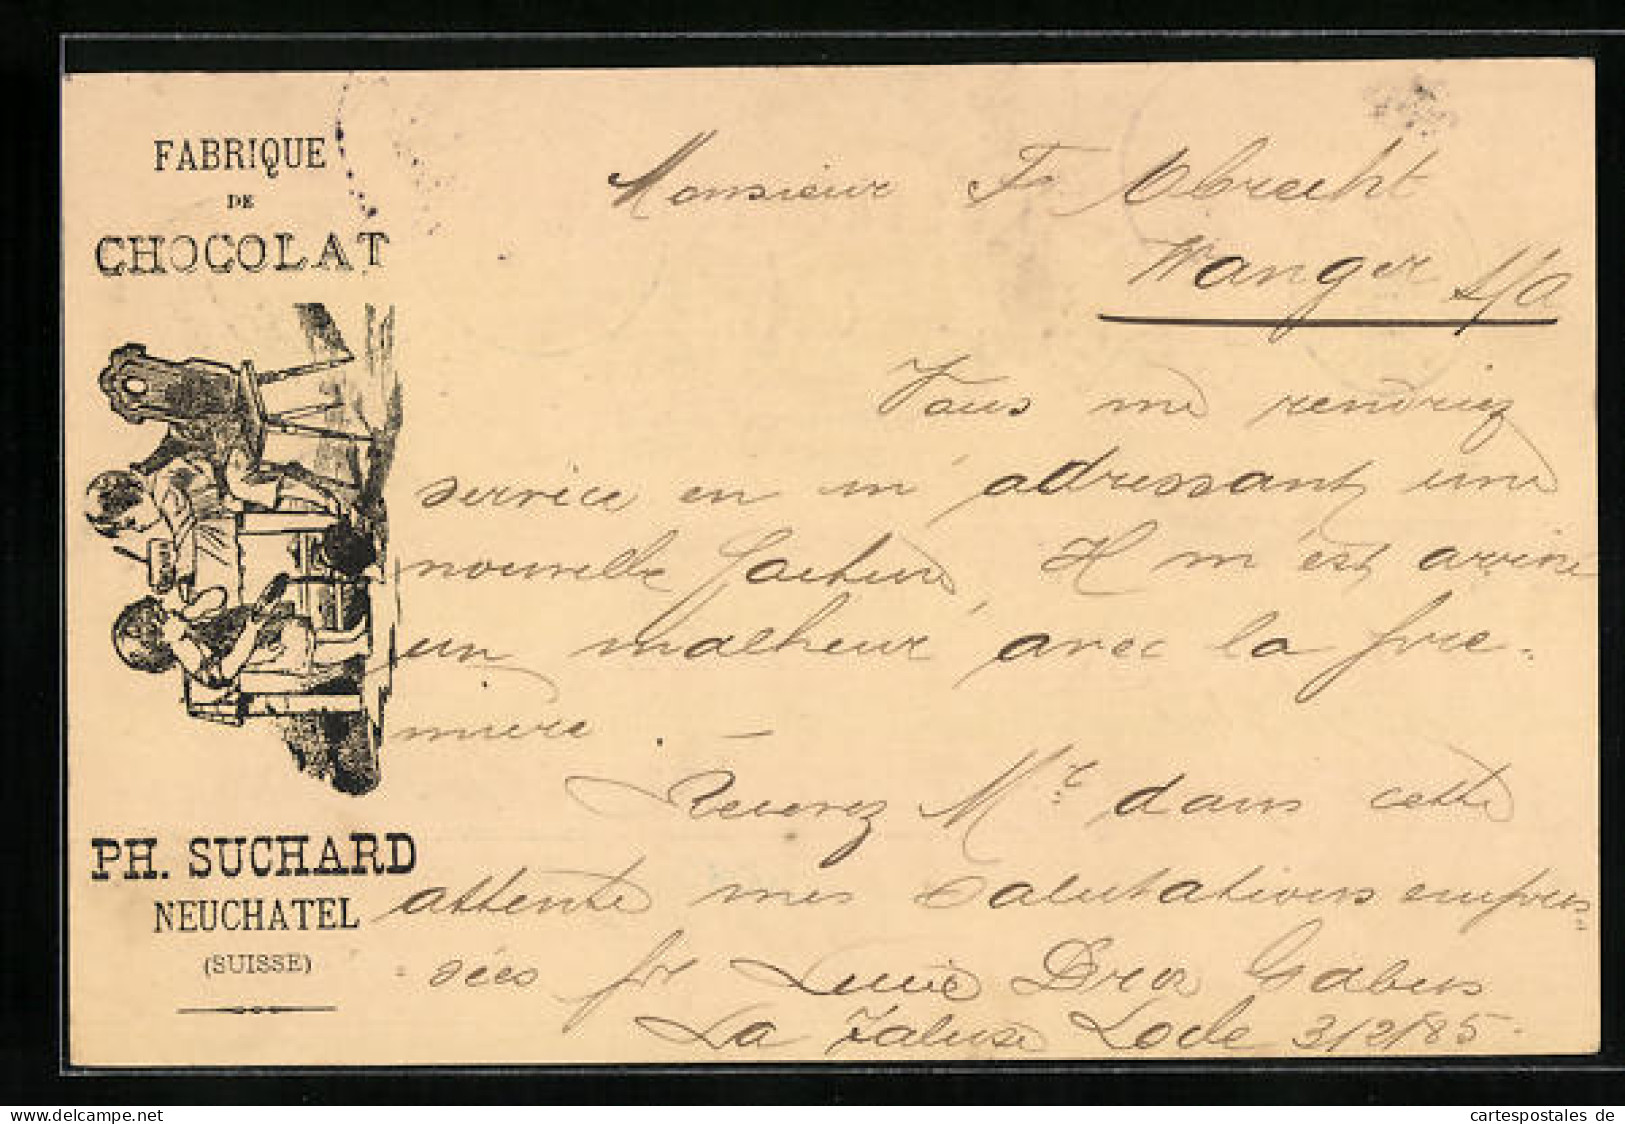 FABRIQUE
DE
CHOCOLAT
PH. SUCHARD
NEUCHATEL
(SUISSE)
Monsieur Fr Obrecht
Wangen s/A
Vous me rendriez
service en m'adressant une
nouvelle facture, Il m'est arrivé
un malheur avec la pre-
mière.
Recevez Mr dans cette
attente mes salutations empres-
sées pr Lucie Droz Gabus
La Jaluse Locle 3/2/85.
cartespostales de